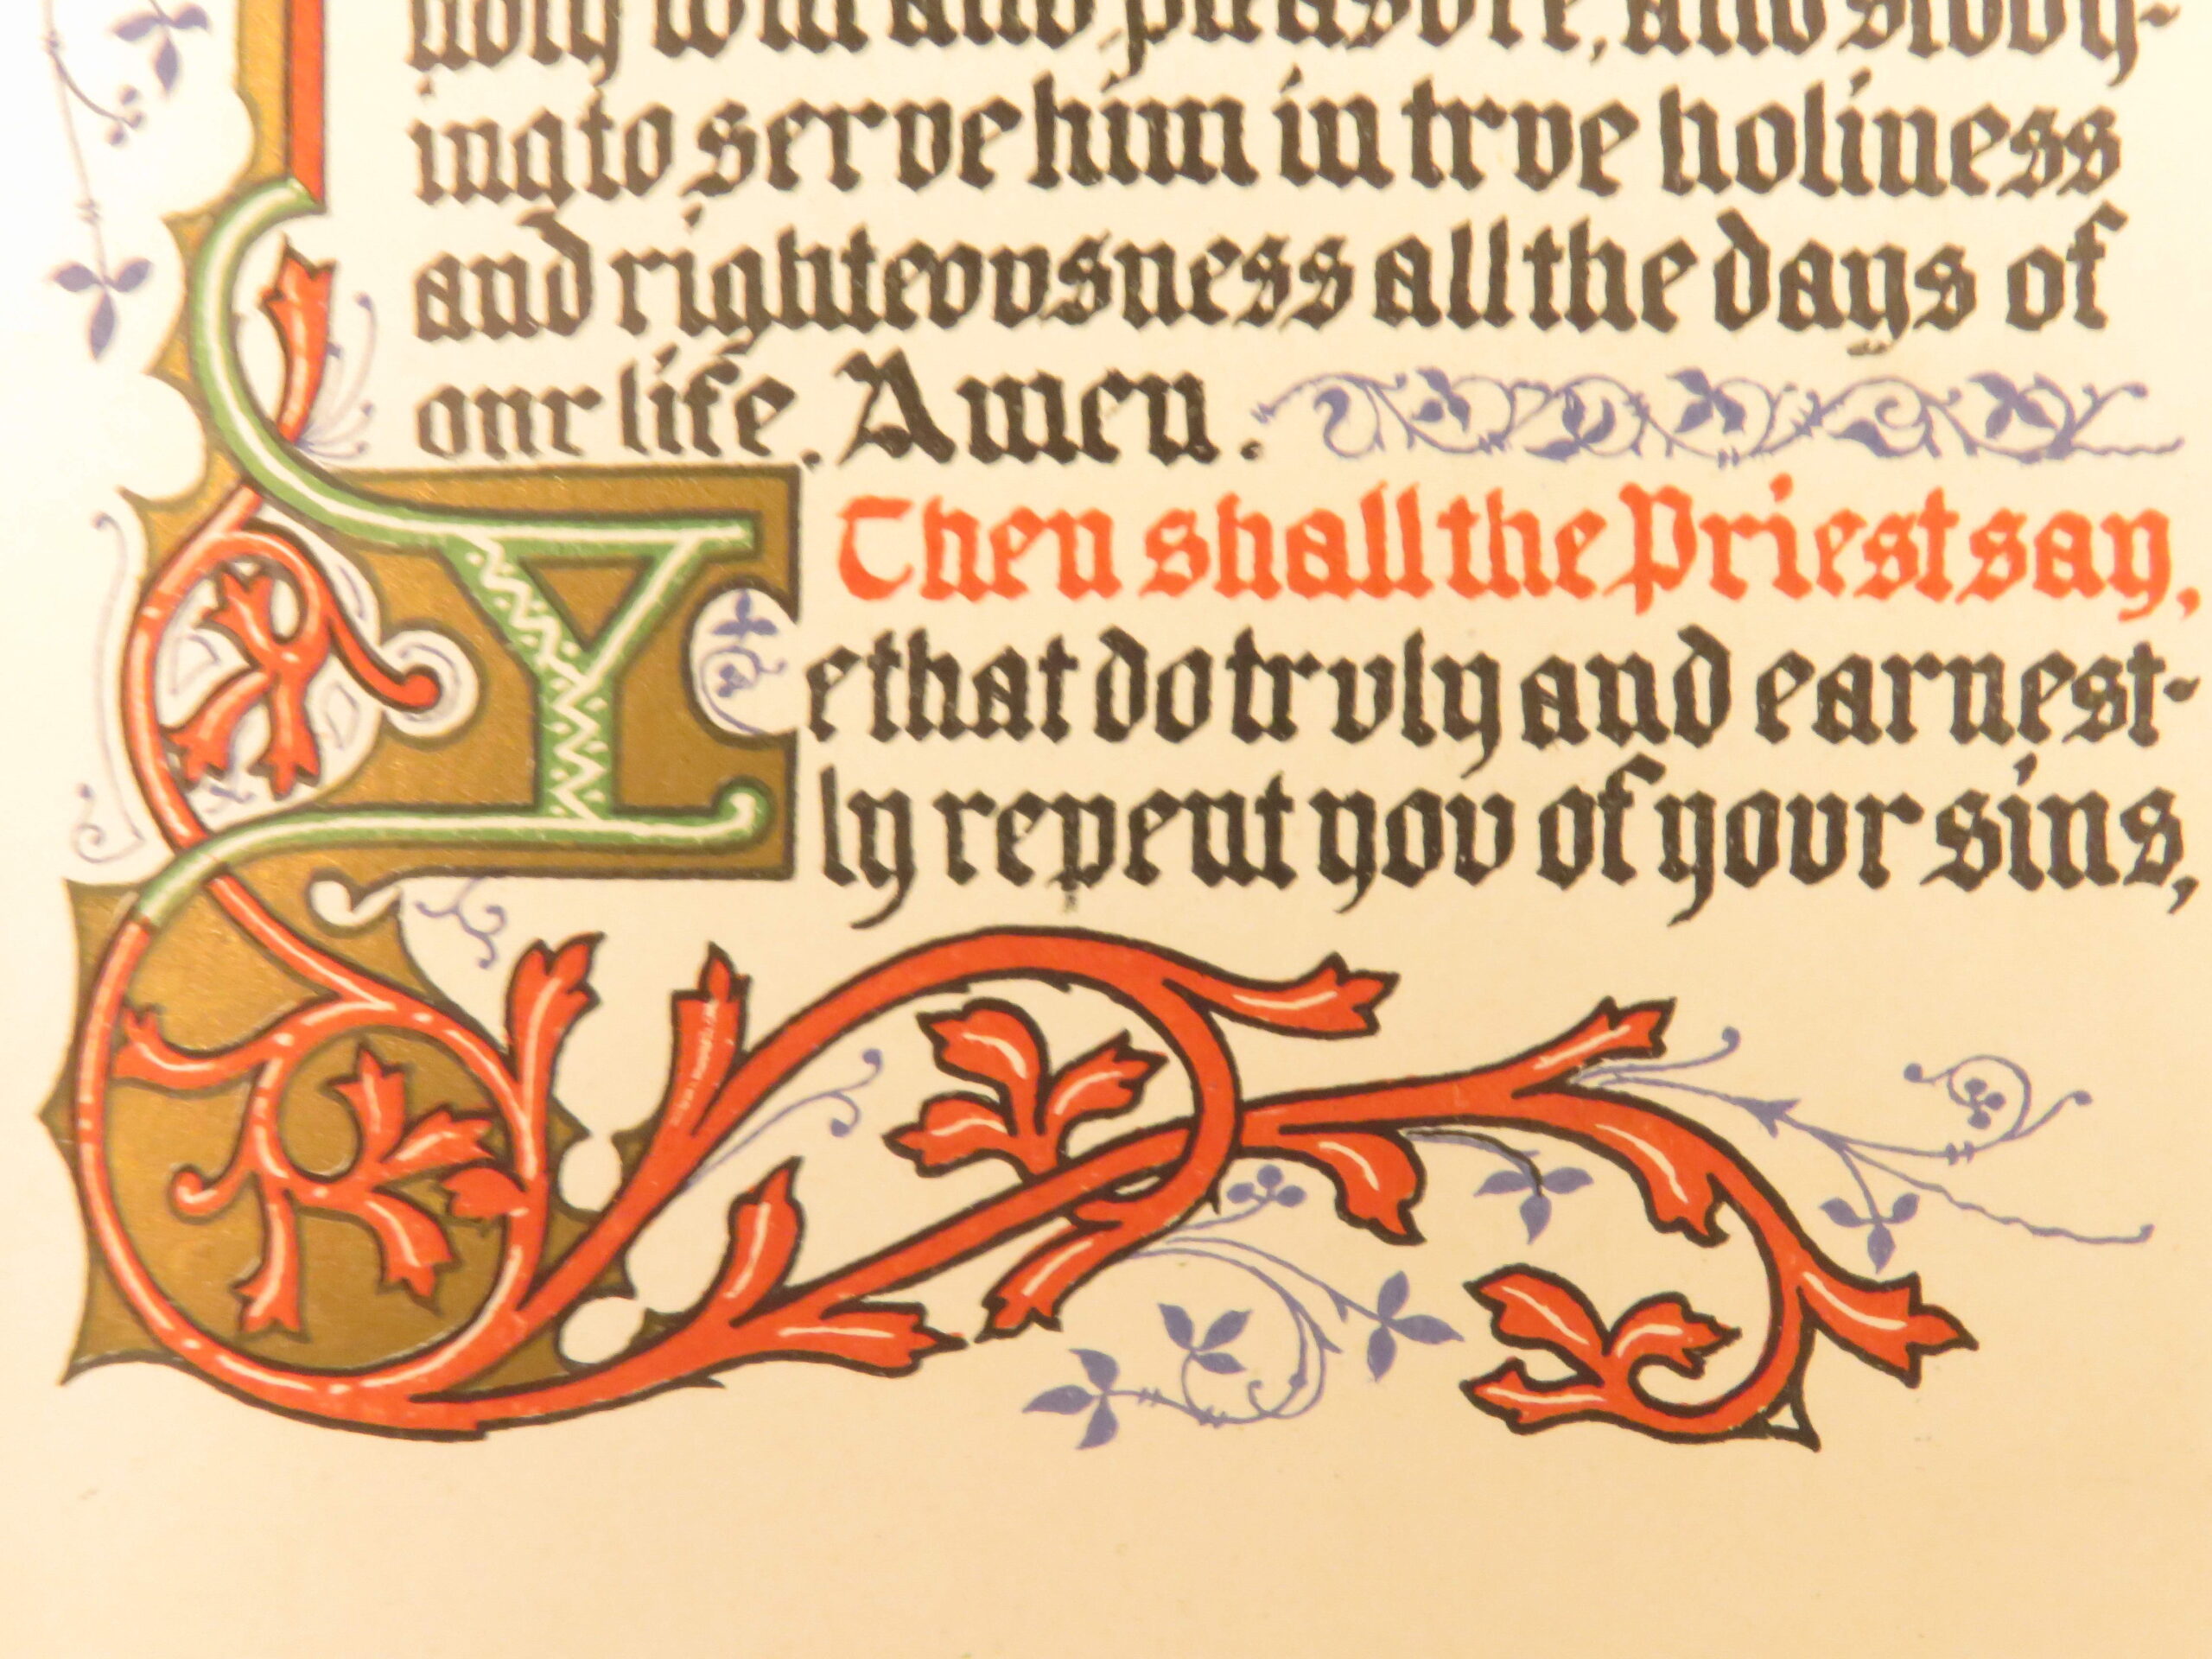 holy will and pleasvre, and stvdy-
ing to serve him in trve holiness
and righteovsness all the days of
our life. Amen.
Then shall the Priest say,
Ye that do trvly and earnest-
ly repent yov of yovr sins,